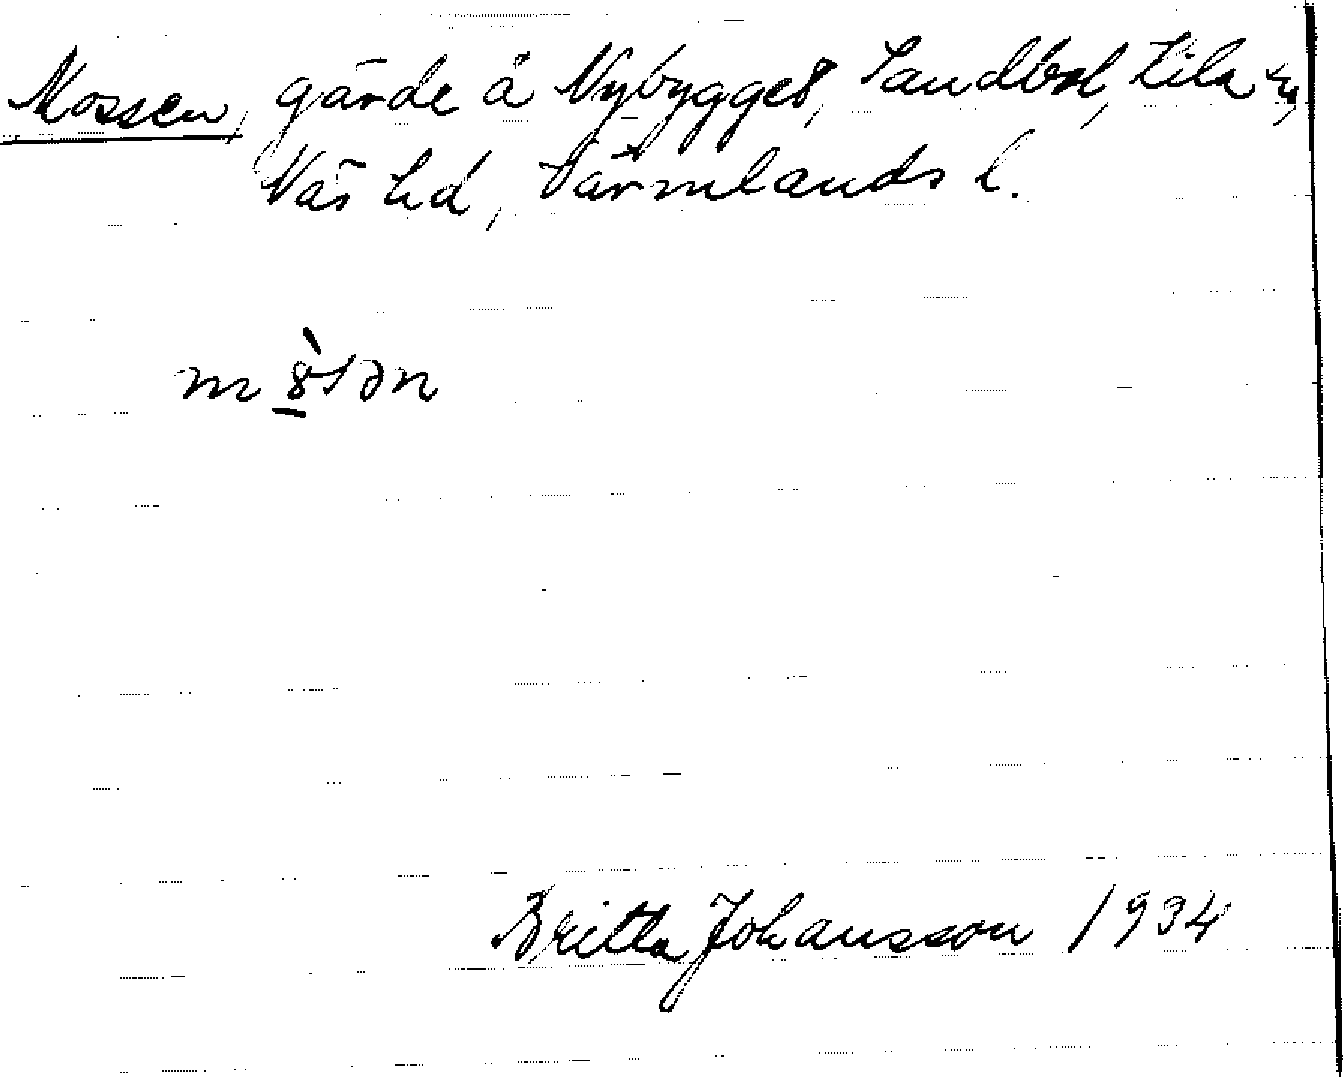 Mossen, gärde å Nybygget, Sandbol, Kila sn,
Näs hd, Värmlands l.
Britta Johansson 1934